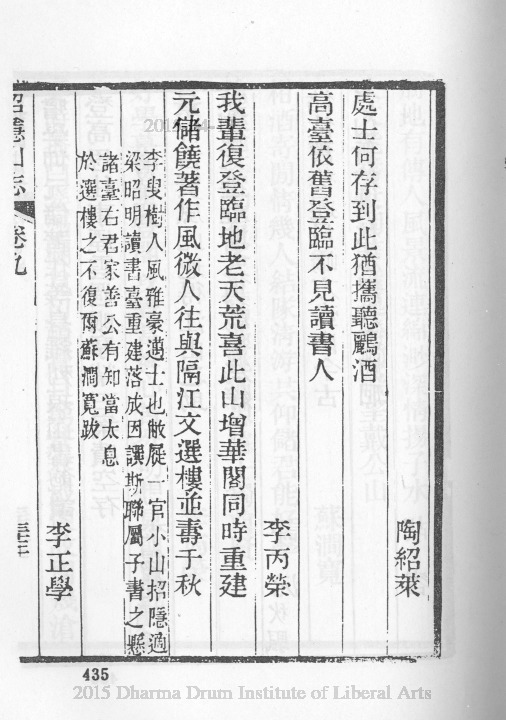 陶紹萊
處士何存到此猶攜聽鸝酒
高臺依舊登臨不見讀書人
李丙榮
我輩復登臨地老天荒喜此山增華閣同時重建
元儲饒著作風微人往與隔江文選樓並壽千秋
李叟樹人風雅豪邁士也敝屣一官小山招隱適
梁昭明讀書臺重建落成因譔斯聯屬予書之懸
諸臺右君家善公有知當太息
於選樓之不復爾蘇澗寬跋
李正學
招隱山志
卷九
435
2015 Dharma Drum Institute of Liberal Arts